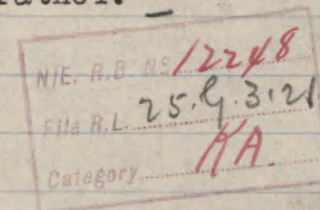 N/E. R.B. Nº 12248
File R.L. 25.G.3.21
Category KA